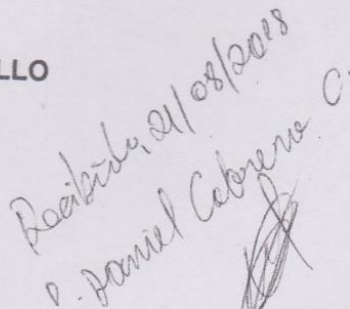 LLO
Recibido, 21/08/2018
P. Daniel Cabrera C.